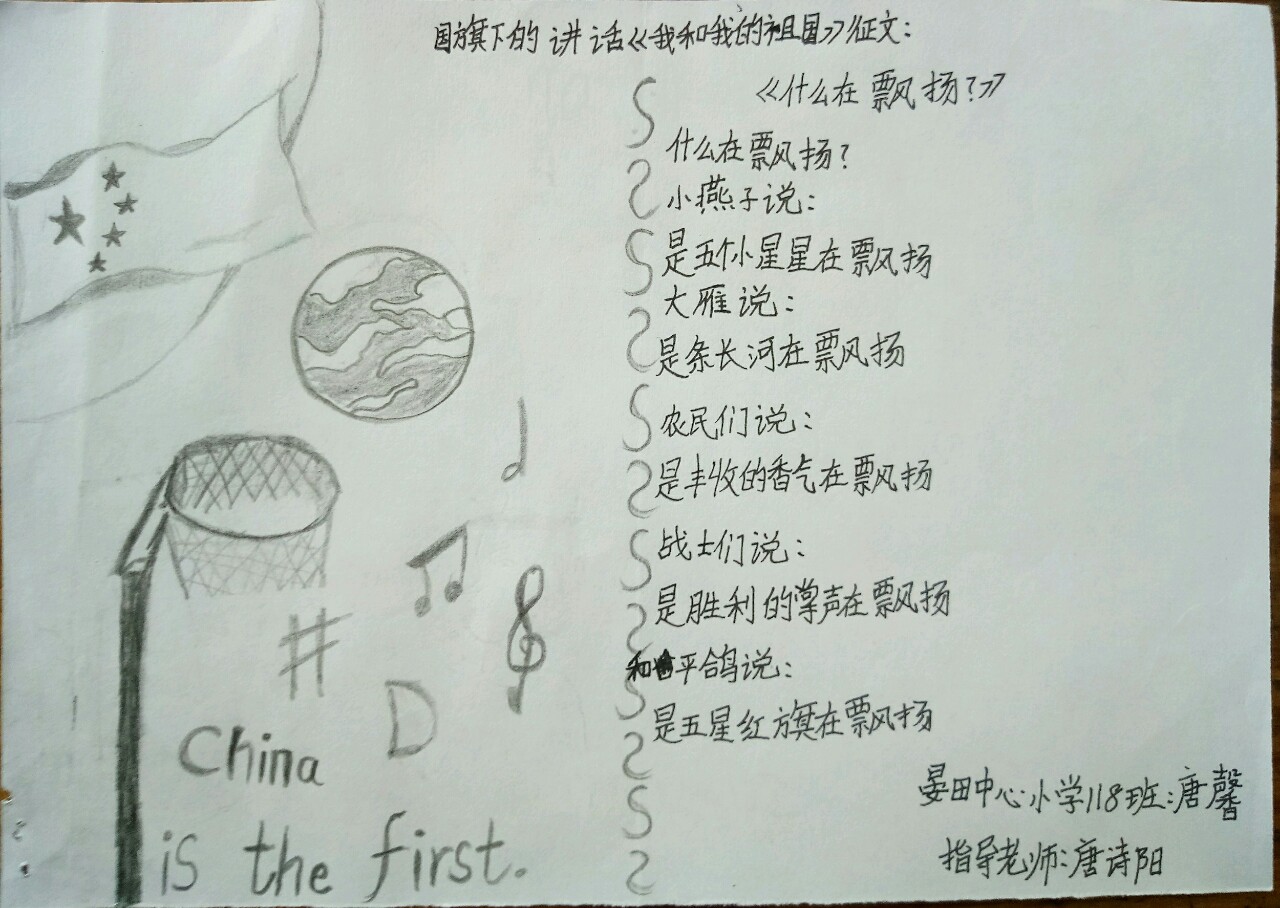 国旗下的讲话《我和我的祖国》征文：
《什么在飘扬？》
什么在飘扬？
小燕子说：
是五个小星星在飘扬
大雁说：
是条长河在飘扬
农民们说：
是丰收的香气在飘扬
战士们说：
是胜利的掌声在飘扬
和平鸽说：
是五星红旗在飘扬
晏田中心小学118班：唐馨
指导老师：唐诗阳
D
China
is the first.